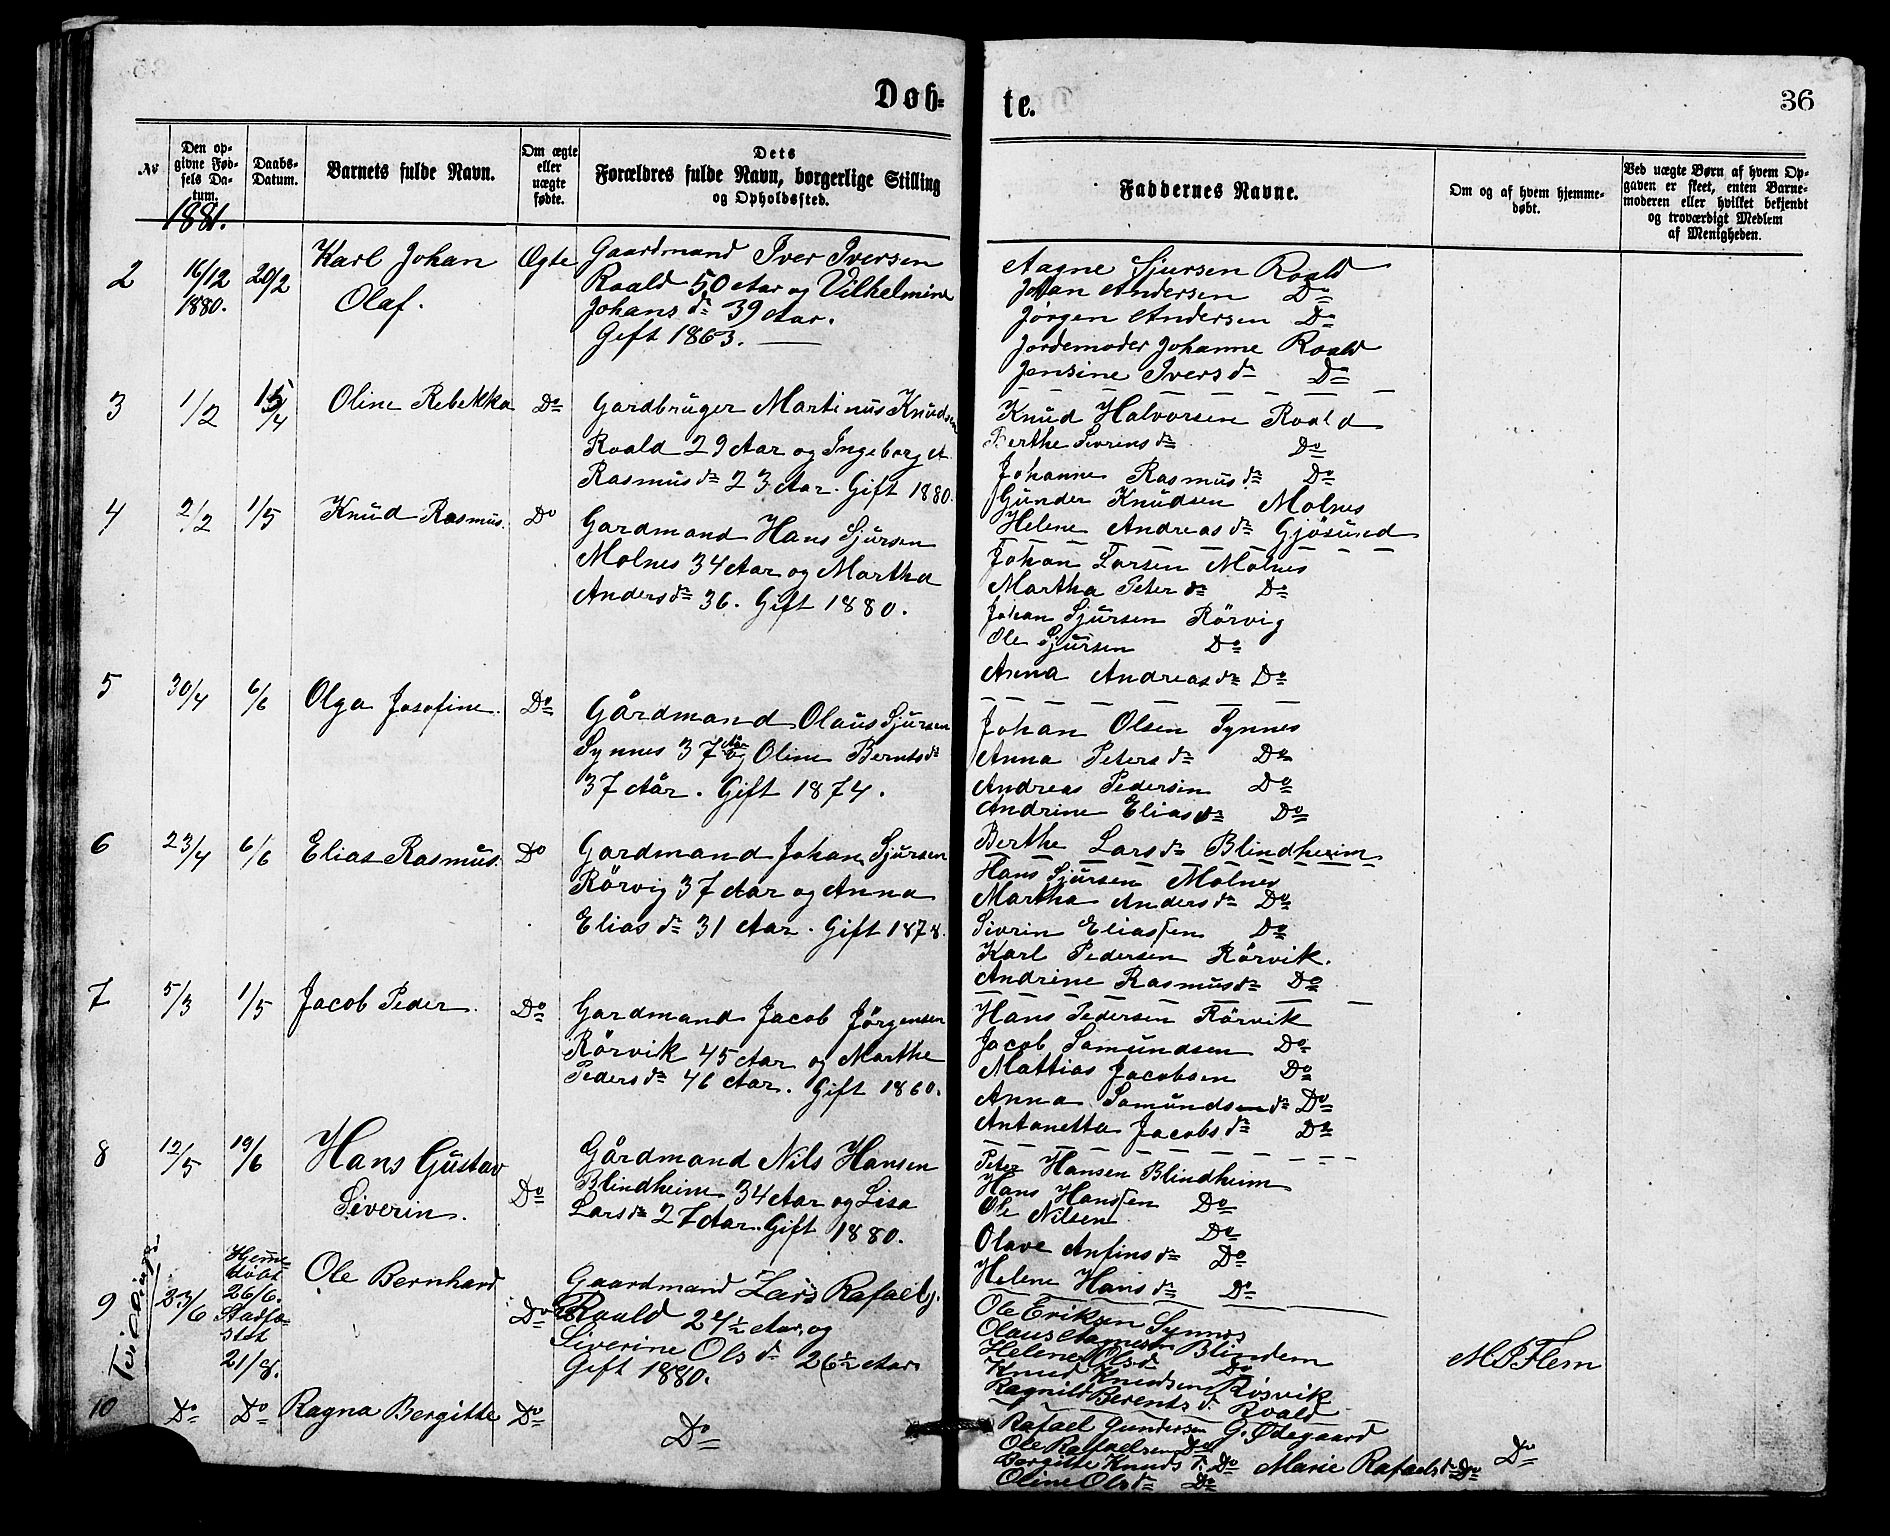 Døb=
te.
36
No
Den opgivne Fødsels Datum.
Daabs-Datum.
Barnets fulde Navn.
Om ægte eller uægte fødte.
Dets Forældres fulde Navn, borgerlige Stilling og Opholdssted.
Faddernes Navne.
Om og af hvem hjemmedøbt.
Ved uægte Børn af hvem Opgaven er skeet, enten Barnemoderen eller hvilket bekjendt og troværdigt Medlem af Menigheden.
1881.
2 16/12 1880. 20/2 Karl Johan Olaf. Ægte
Gaardmand Iver Iversen
Roald 50 Aar og Vilhelmine
Johans dr 39 Aar.
Gift 1863.
Aagne Sjursen Roald
Johan Andersen Do
Jørgen Andersen Do
Jordemoder Johanne Roald
Jensine Ivers dr Do
3 1/2 /4 Oline Rebekka Do
Gardbruger Martinus Knudsen
Roald 29 Aar og Ingeborg A
Rasmus dr 23 Aar. Gift 1880.
Knud Halvorsen Roald
Berthe Sivrins dr Do
Johanne Rasmus dr Do
Gunder Knudsen Molnes
Helene Andreas dr Gjösund
4 2/2 1/5 Knud Rasmus. Do
Gardmand Hans Sjursen
Molnes 34 Aar og Martha
Anders dr 36. Gift 1880.
Johan Larsen Molnes
Martha Peter dr Do
Johan Sjursen Rörvig
Ole Sjursen Do
Anna Andreas dr Do
5 30/4 6/6 Olga Josefine. Do
Gårdmand Olaus Sjursen
Synnes 37 Aar og Oline Bernts dr
37 Aar. Gift 1874.
Johan Olsen Synnes
Anna Peters dr Do
Andreas Pedersen Do
Andrine Elias dr Do
Berthe Lars dr Blindheim
6 23/4 6/6 Elias Rasmus. Do
Gardmand Johan Sjursen
Rörvig 37 Aar og Anna
Elias dr 31 Aar. Gift 1878.
Hans Sjursen Molnes
Martha Anders dr Do
Sivrin Eliassen Do
Karl Pedersen Rörvik.
Andrine Rasmus dr Do
7 5/3 1/5 Jacob Peder. Do
Gardmand Jacob Jörgensen
Rörvik 45 Aar og Marthe
Peders dr 46 Aar. Gift 1860.
Hans Pedersen Rörvik
Jacob Samundsen Do
Mattias Jacobsen Do
Anna Samunds dr Do
Antonetta Jacobs dr Do
8 12/5 19/6 Hans Gustav Siverin. Do
Gårdmand Nils Hansen
Blindheim 34 Aar og Lisa
Lars dr 27 Aar. Gift 1880.
Peter Hansen Blindheim
Hans Hanssen Do
Ole Nilsen Do
Olave Anfins dr Do
Helene Hans dr Do
Tvillinge
9 23/6 Hjemedöbt 26/6. Stadfæstet 21/8. Ole Bernhard Do
Gaardmand Lars Rafaels.
Roald 24½ Aar, og
Siverine Ols dr 26½ Aar
Gift 1880.
Ole Eriksen Synnes
Olaus Aagnesen Blindem
Helene Olsd Do
Knud Knudsen Rösvik
Ragnild Berents d. Roald
M S Flem
10 Do Do Ragna Bergitte Do
Do
Rafael Gundersen G. Ødegaard
Ole Rafaelsen Do
Bergitte Knuds d. Do Marie Rafaels dr Do
Oline Ols dr Do
Do